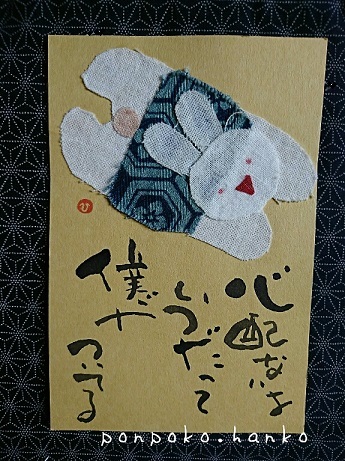 心配ないよ
いつだって
僕が
ついてる
ひ
ponpoko.hanko